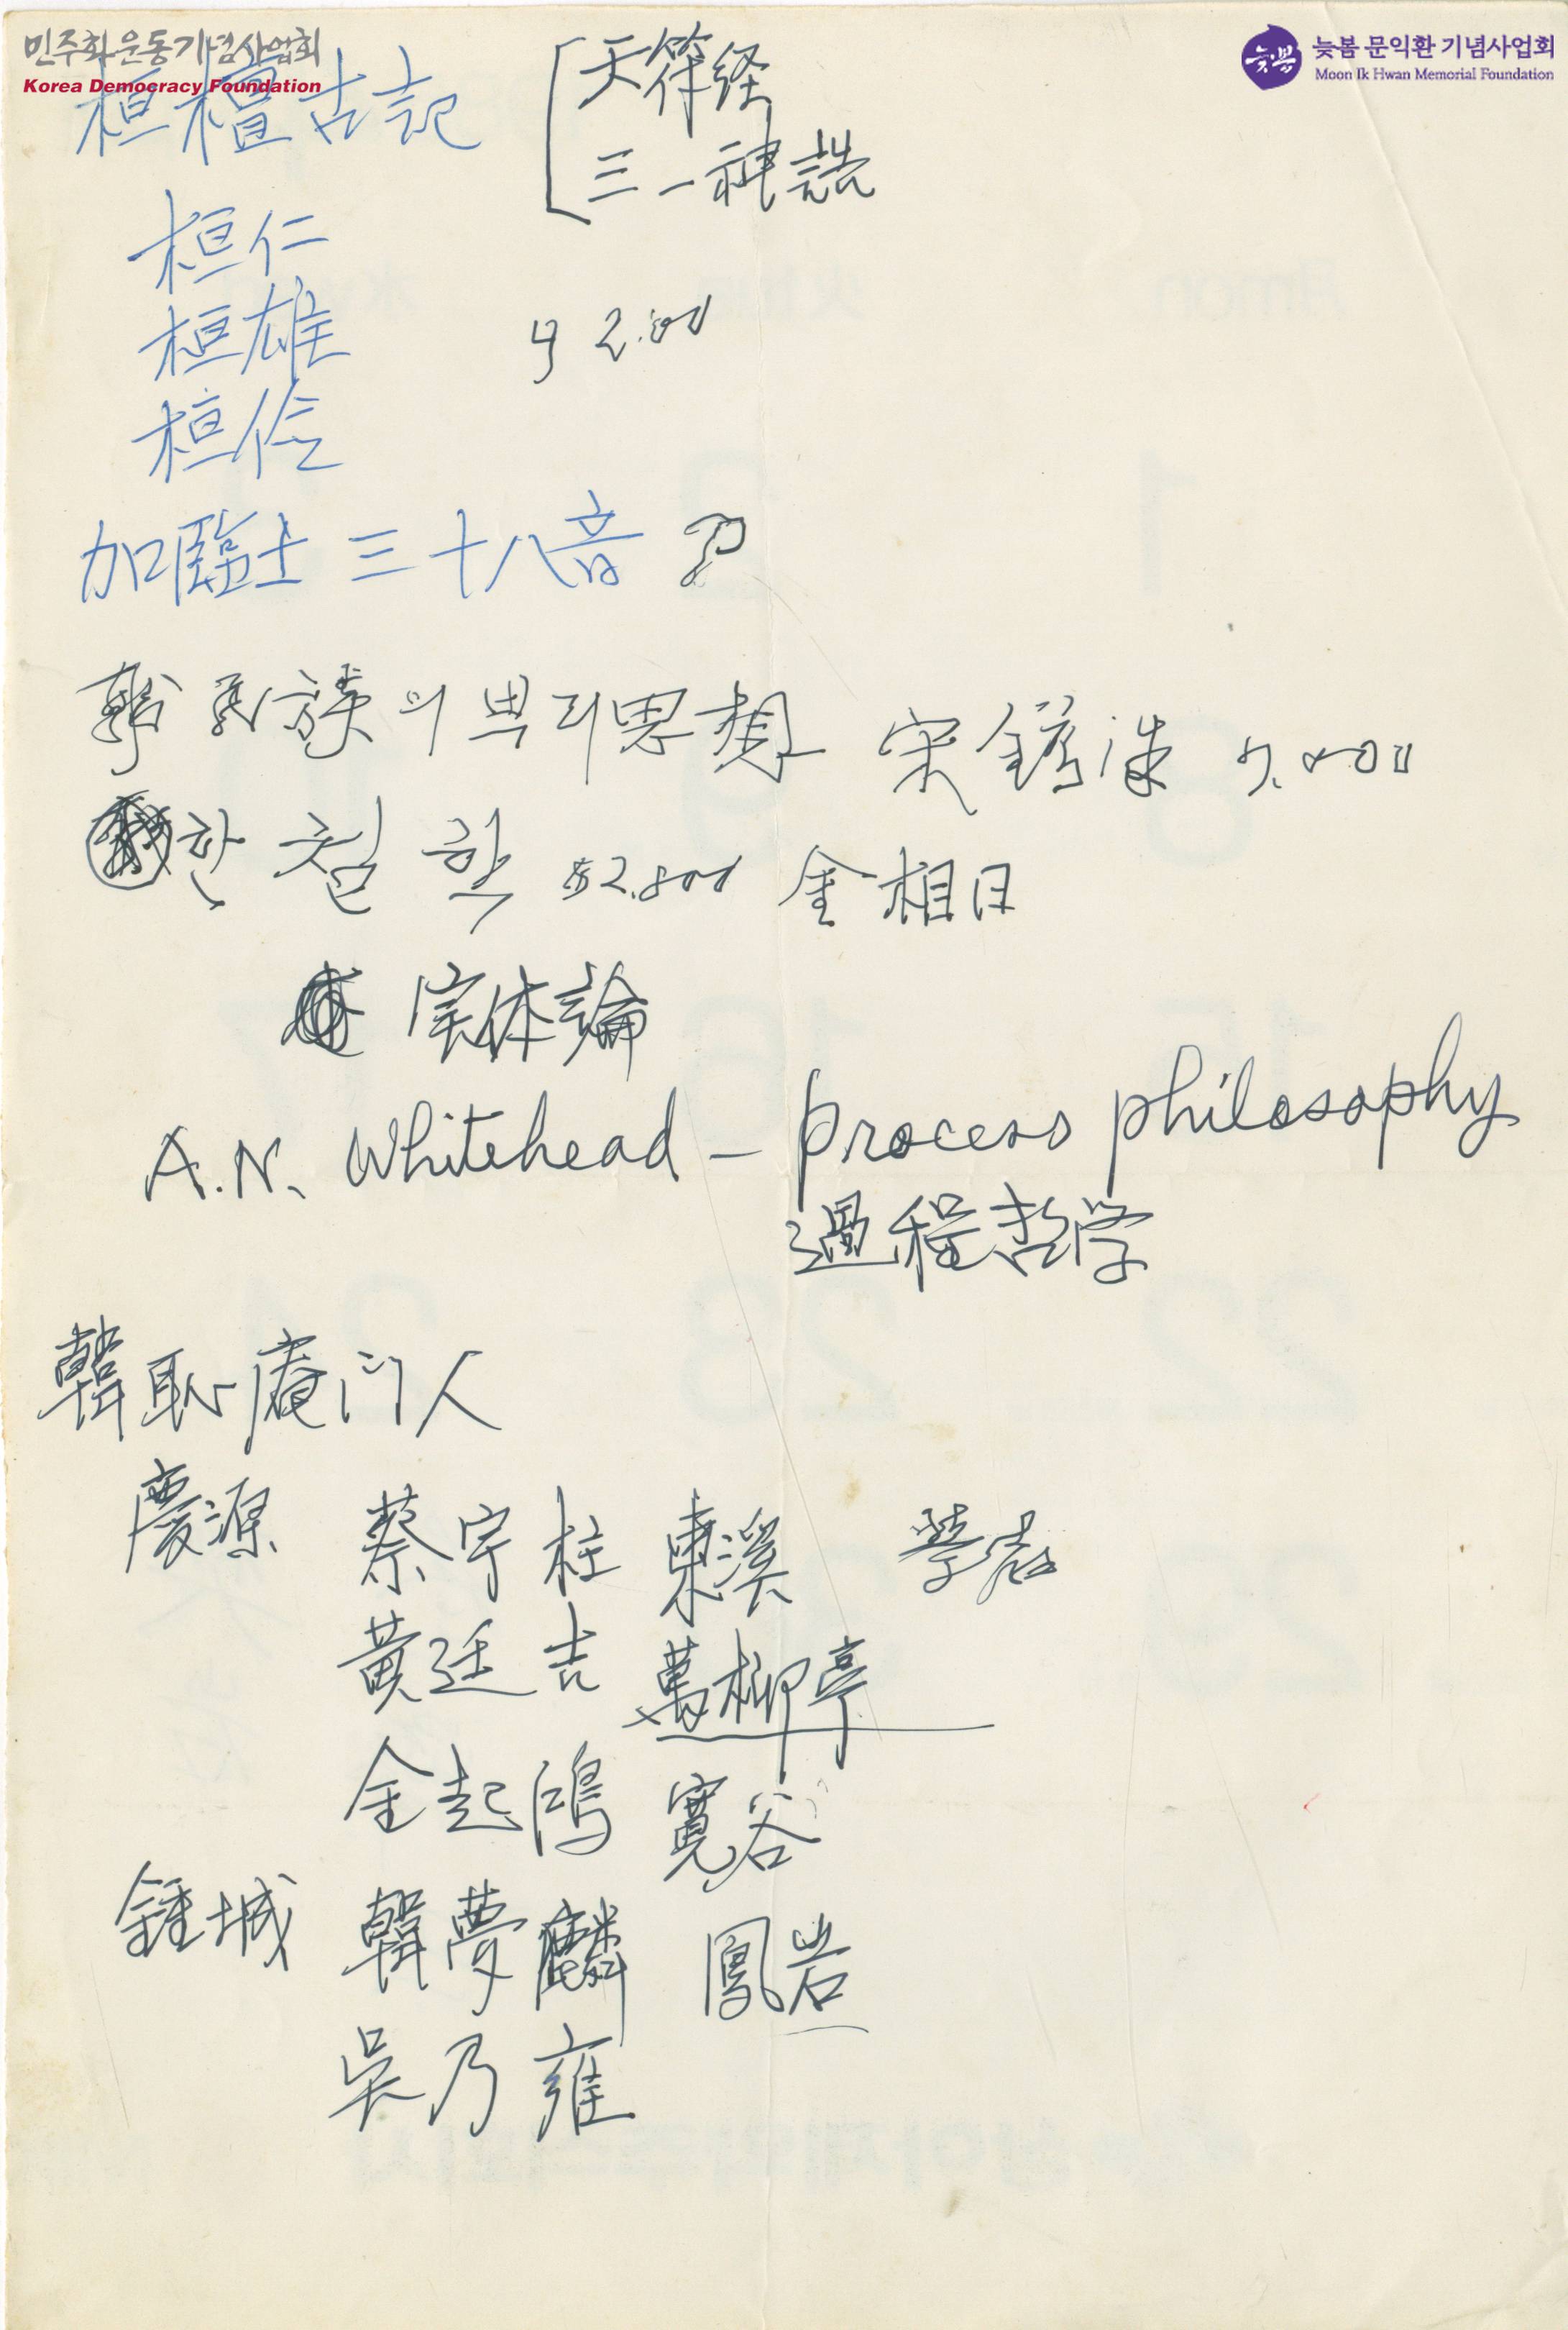 민주화운동기념사업회
Korea Democracy Foundation
늦봄
늦봄 문익환 기념사업회
Moon Ik Hwan Memorial Foundation
桓檀古記
天符経
三一神誥
桓仁
桓雄
桓倹
加臨土 三十八音 ?
韓民族의 뿌리思想 宋鎬洙 7,000
한철학 2,800 金相日
実体論
A.N. Whitehead - process philosophy
過程哲学
韓恥庵门人
慶源 蔡宇柱 東溪 學岩
黃廷吉 萬柳亭
金起鴻 寬谷
鍾城 韓夢麟 鳳岩
吳乃雍